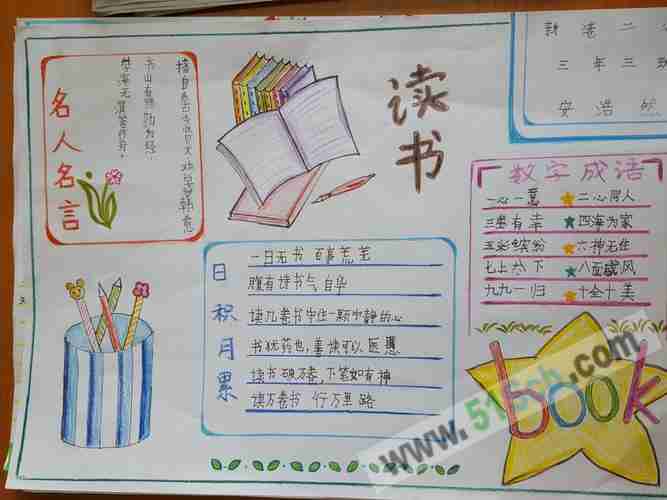 新港二
三年三班
安浩然
读书
名人名言
书山有路勤为径
学海无涯苦作舟
摘自《古今贤文 劝学》韩愈
数字成语
一心一意 ★ 二心同人
三生有幸 ★ 四海为家
五彩缤纷 ★ 六神无主
七上八下 ★ 八面威风
九九一归 ★ 十全十美
日积月累
一日无书 百事荒芜
腹有诗书气自华
读几卷书守住一颗宁静的心
书犹药也，善读可以医愚
读书破万卷，下笔如有神
读万卷书 行万里路
book